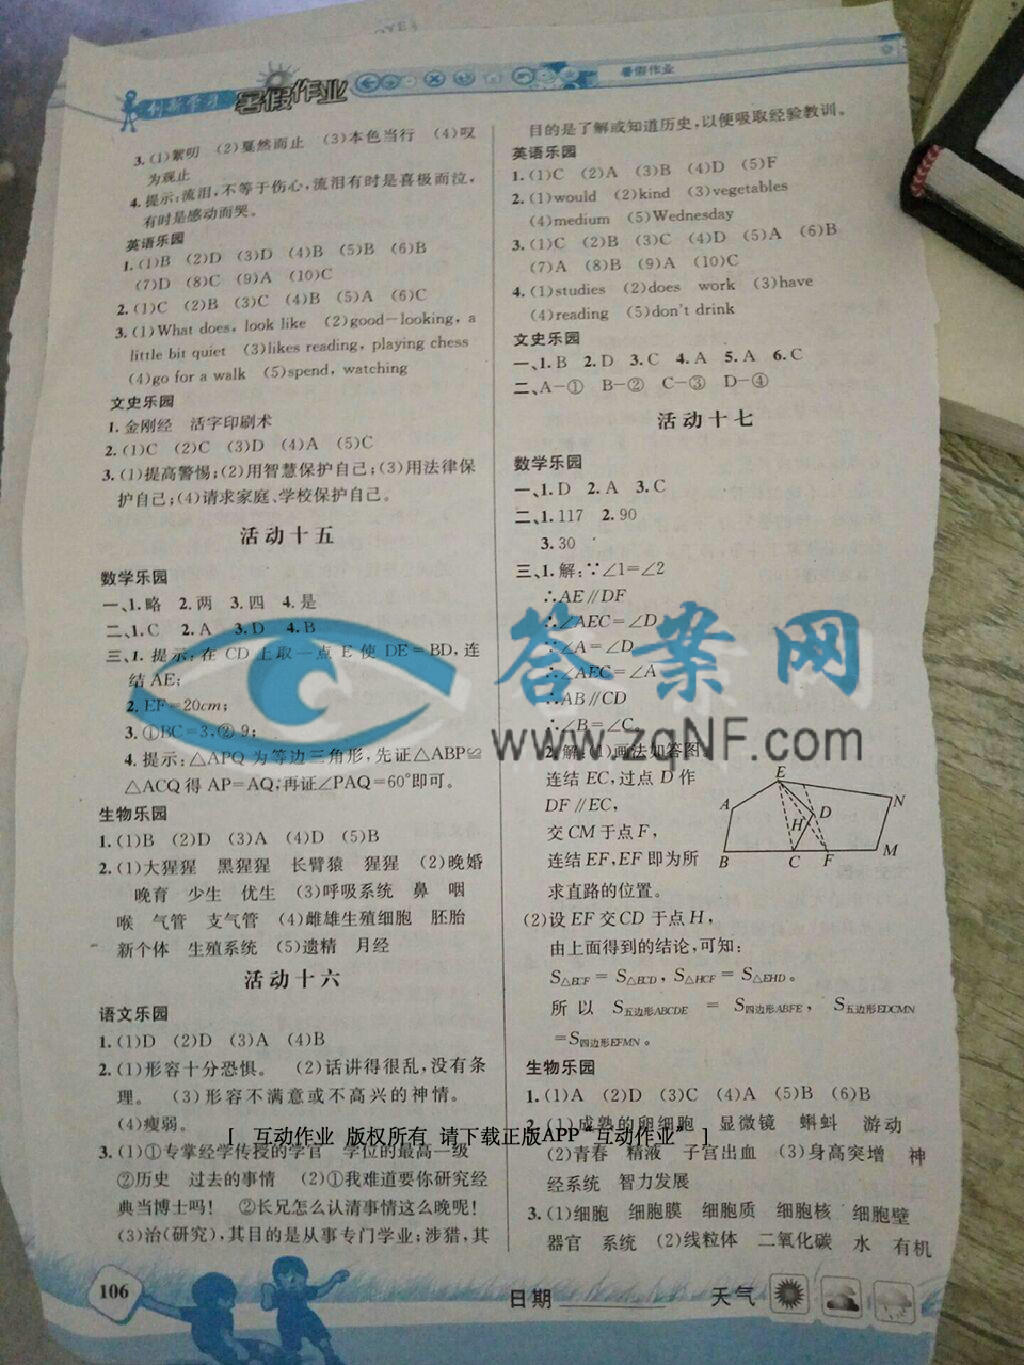 创新学习 暑假作业
暑假作业
3.(1)絮叨 (2)戛然而止 (3)本色当行 (4)叹
为观止
4.提示:流泪,不等于伤心,流泪有时是喜极而泣,
有时是感动而哭。
英语乐园
1.(1)B (2)D (3)D (4)B (5)B (6)B
(7)D (8)C (9)A (10)C
2.(1)C (2)B (3)C (4)B (5)A (6)C
3.(1)What does, look like (2)good-looking, a
little bit quiet (3)likes reading, playing chess
(4)go for a walk (5)spend, watching
文史乐园
1.金刚经 活字印刷术
2.(1)C (2)C (3)D (4)A (5)C
3.(1)提高警惕;(2)用智慧保护自己;(3)用法律保
护自己;(4)请求家庭、学校保护自己。
活动十五
数学乐园
一、1.略 2.两 3.四 4.是
二、1.C 2.A 3.D 4.B
三、1.提示:在 CD 上取一点 E 使 DE=BD,连
结 AE;
2.EF=20cm;
3.①BC=3,②9;
4.提示:△APQ 为等边三角形,先证△ABP≌
△ACQ 得 AP=AQ,再证∠PAQ=60°即可。
生物乐园
1.(1)B (2)D (3)A (4)D (5)B
2.(1)大猩猩 黑猩猩 长臂猿 猩猩 (2)晚婚
晚育 少生 优生 (3)呼吸系统 鼻 咽
喉 气管 支气管 (4)雌雄生殖细胞 胚胎
新个体 生殖系统 (5)遗精 月经
活动十六
语文乐园
1.(1)D (2)D (3)A (4)B
2.(1)形容十分恐惧。 (2)话讲得很乱,没有条
理。 (3)形容不满意或不高兴的神情。
(4)瘦弱。
3.(1)①专掌经学传授的学官 学位的最高一级
②历史 过去的事情 (2)①我难道要你研究经
典当博士吗! ②长兄怎么认清事情这么晚呢!
(3)治(研究),其目的是从事专门学业;涉猎,其
目的是了解或知道历史,以便吸取经验教训。
英语乐园
1.(1)C (2)A (3)B (4)D (5)F
2.(1)would (2)kind (3)vegetables
(4)medium (5)Wednesday
3.(1)C (2)B (3)C (4)D (5)A (6)B
(7)A (8)B (9)A (10)C
4.(1)studies (2)does work (3)have
(4)reading (5)don't drink
文史乐园
一、1.B 2.D 3.C 4.A 5.A 6.C
二、A-① B-② C-③ D-④
活动十七
数学乐园
一、1.D 2.A 3.C
二、1.117 2.90
3.30
三、1.解:∵∠1=∠2
∴AE∥DF
∴∠AEC=∠D
∵∠A=∠D
∴∠AEC=∠A
∴AB∥CD
∴∠B=∠C
2.解:(1)画法如答图
连结 EC,过点 D 作
DF∥EC,
交 CM 于点 F,
连结 EF,EF 即为所
求直路的位置。
E
A
N
D
H
B C F M
(2)设 EF 交 CD 于点 H,
由上面得到的结论,可知:
S△ECF=S△ECD,S△HCF=S△EHD。
所以 S五边形ABCDE = S四边形ABFE, S五边形EDCMN
=S四边形EFMN。
生物乐园
1.(1)A (2)D (3)C (4)A (5)B (6)B
2.(1)成熟的卵细胞 显微镜 蝌蚪 游动
(2)青春 精液 子宫出血 (3)身高突增 神
经系统 智力发展
3.(1)细胞 细胞膜 细胞质 细胞核 细胞壁
器官 系统 (2)线粒体 二氧化碳 水 有机
答案网
www.zqNF.com
[ 互动作业 版权所有 请下载正版APP“互动作业” ]
106
日期 天气